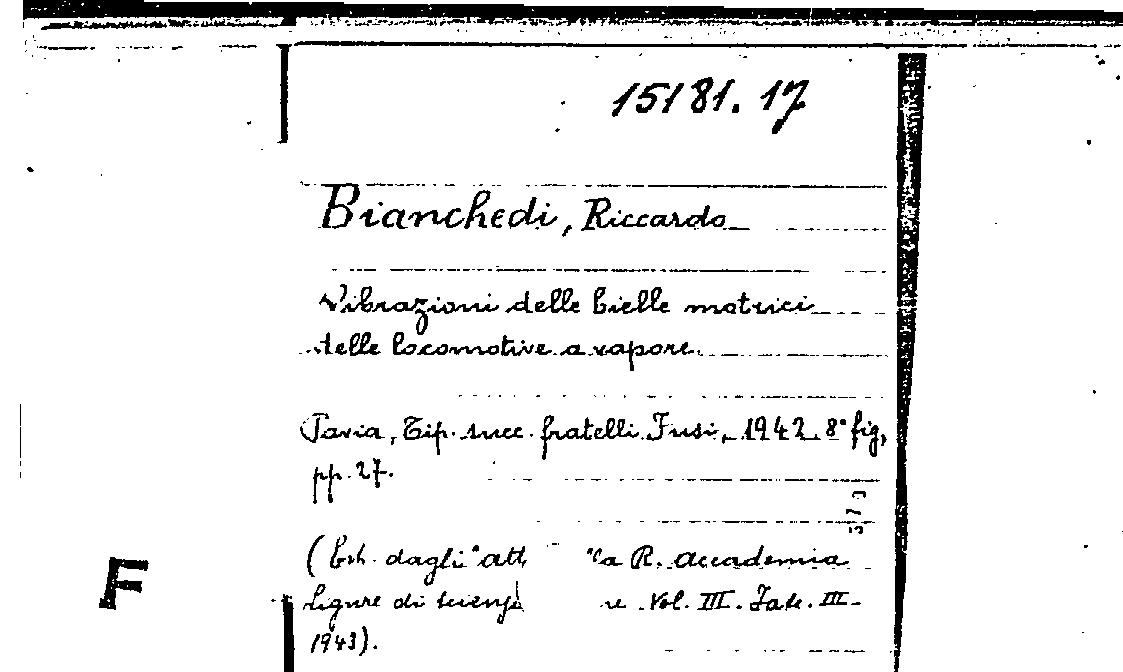 15181.17
Bianchedi, Riccardo
Vibrazioni delle bielle motrici
delle locomotive a vapore.
Pavia, Tip. succ. fratelli Fusi, 1942 8° fig,
pp. 27.
579
(Estr. dagli "Att la R. Accademia
ligure di scienz e Vol. III. Fasc. III
1943).
F